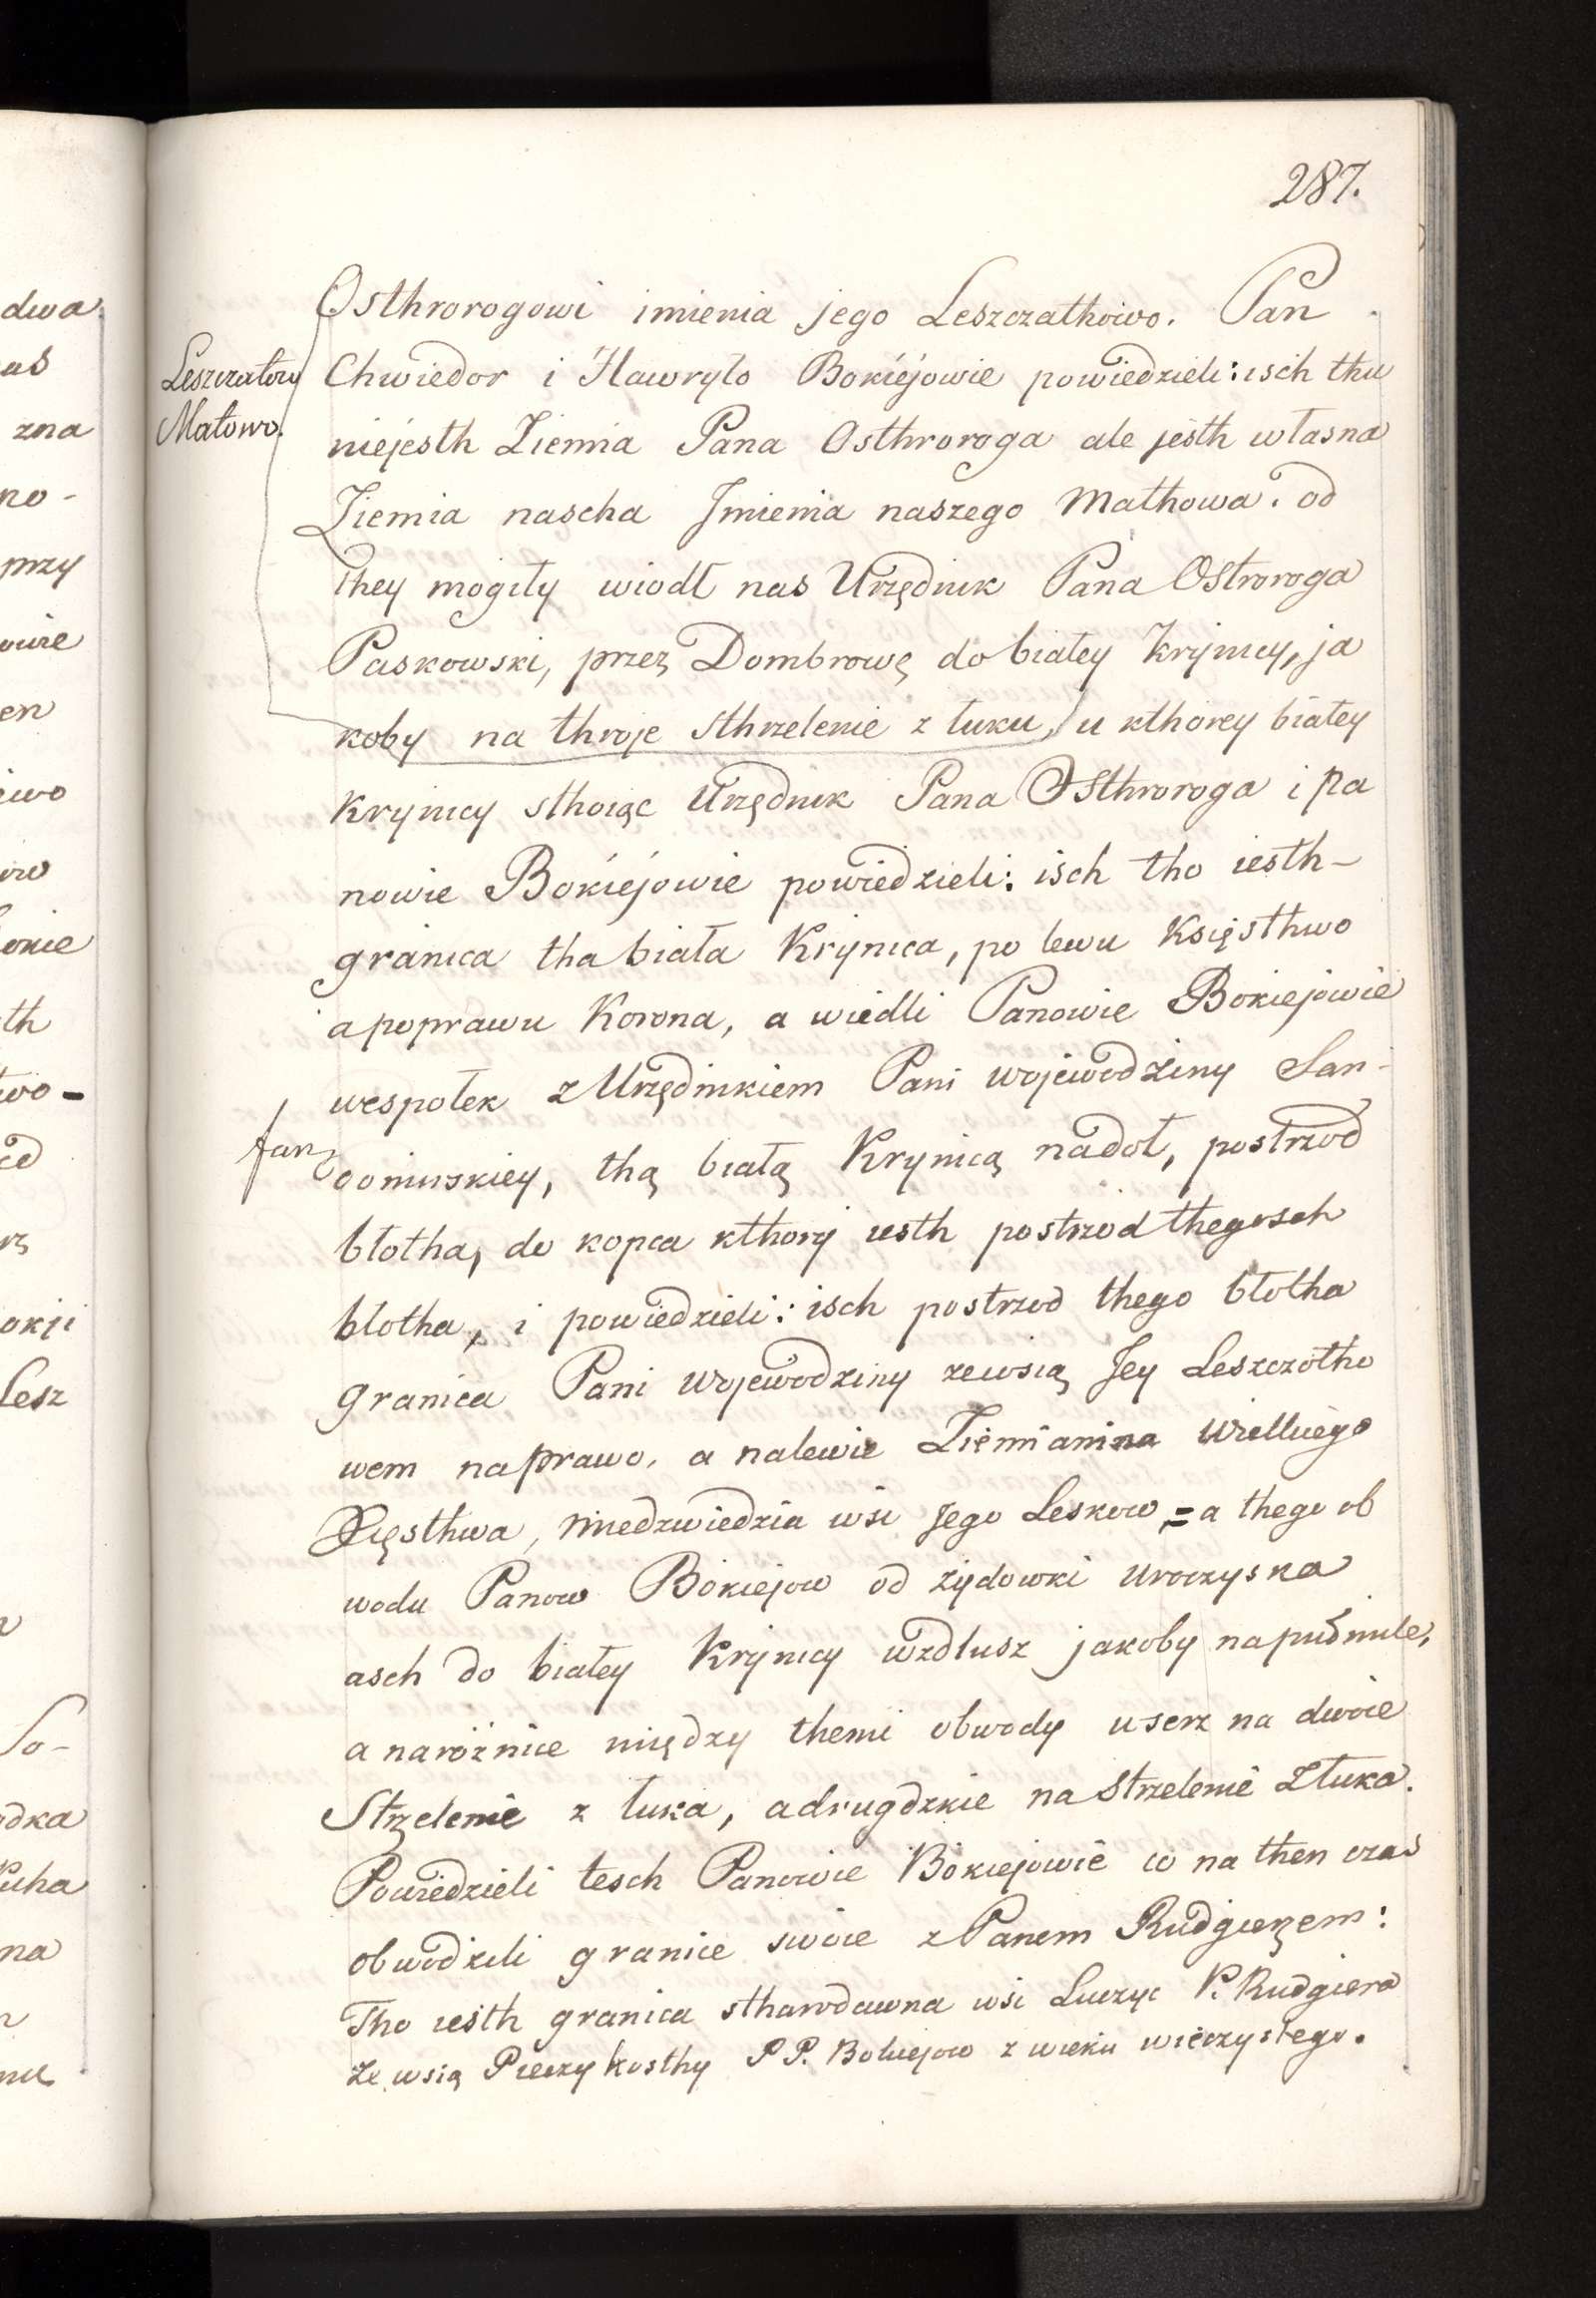 287.
Osthrorogowi imienia jego Leszczathowo. Pan
Leszczatowo
Małowo.
Chwiedor i Hawryło Bokiéjowie powiedzieli: isch thu
niejesth Ziemia Pana Osthroroga ale jesth własna
Ziemia nascha Jmienia naszego Małhowa. od
they mogiły wiodł nas Urzędnik Pana Ostroroga
Paskowski, przez Dombrowę do białey Krynicy, ja
koby na throje sthrzelenie z łuku, u kthorey białey
Krynicy sthoiąc Urzędnik Pana Osthroroga i Pa
nowie Bokiéjowie powiedzieli: isch tho iesth-
granica tha biała Krynica, po lewu Księsthwo
apoprawu Korona, a wiedli Panowie Bokiejowie
wespołek z Urzędnikiem Pani Wojewodziny San-
domirskiey, thą białą Krynicą nadoł, postrzod
błotha, do kopca kthory iesth postrzod thegosch
błotha, i powiedzieli: isch postrzod thego błotha
granica Pani Wojewodziny zewsią Jey Leszczotho
wem naprawo, a nalewie Ziemianina Wielkiego
Xięsthwa, Niedzwiedzia wsi Jego Leskow = a thego ob
wodu Panow Bokiejow od żydowki uroczyska
asch do białey Krynicy wzdłusz jakoby napułmile,
a narożnice między themi obwody userz na dwoie
Strzelenie z łuka, adrugdzkie na Strzelenie Złuka.
Powiedzieli tesch Panowie Bokiejowie co na then czas
obwodzili granice swoie z Panem Rudgierzem:
Tho iesth granica sthawdawna wsi Łuczyc P. Rudgiera
ze wsią Pieczykosthy P P. Bokiejow z wieku wieczystego.